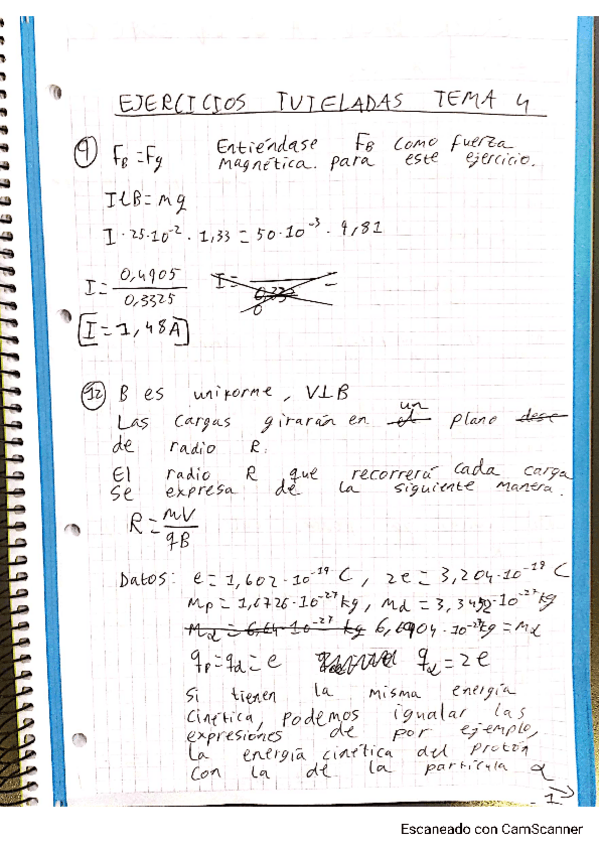 EJERCICIOS TUTELADAS TEMA 4
9 F_B = F_g Entiéndase F_B como fuerza
magnética. para este ejercicio.
IlB = mg
I · 25·10^-2 · 1,33 = 50·10^-3 · 9,81
I = 0,4905 / 0,3325
I = 1,48A
12 B es uniforme, V⊥B
Las cargas girarán en un plano
de radio R.
El radio R que recorrerá cada carga
se expresa de la siguiente manera.
R = mV / qB
Datos: e = 1,602·10^-19 C, 2e = 3,204·10^-19 C
m_p = 1,6726·10^-27 kg, m_d = 3,3452·10^-27 kg
6,6904·10^-27 kg = m_α
q_p = q_d = e q_α = 2e
Si tienen la misma energía
cinética, podemos igualar las
expresiones de por ejemplo,
la energía cinética del protón
con la de la partícula α
1
Escaneado con CamScanner